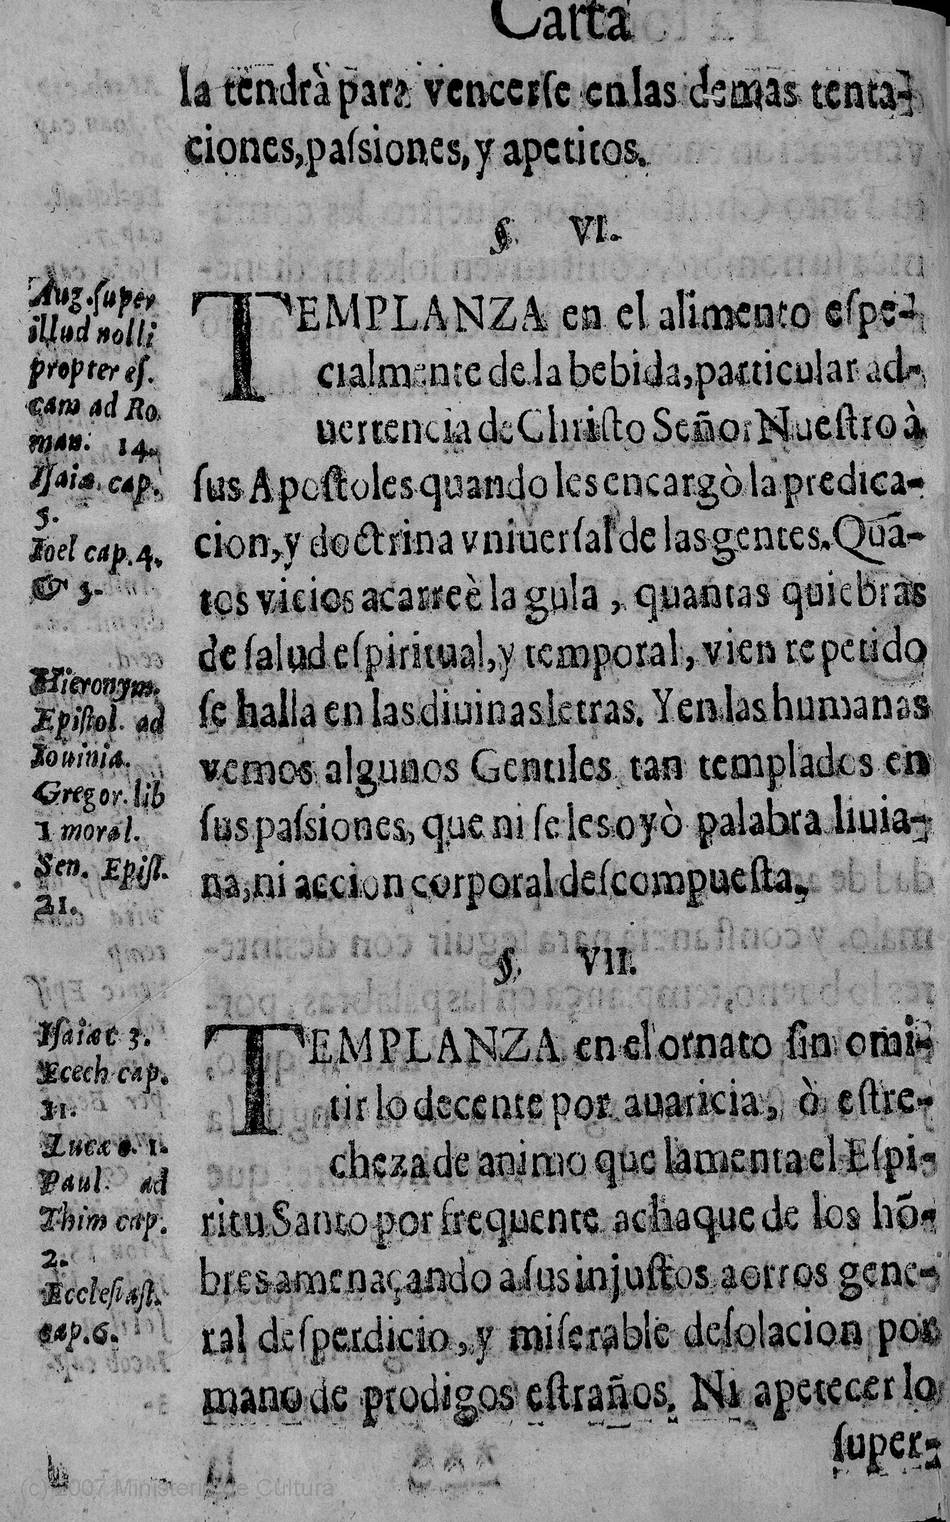 Carta
la tendrà para vencerse en las demas tenta-
ciones, passiones, y apetitos.
§. VI.
Aug. super
illud nolli
propter es.
cam ad Ro
man. 14.
Isaiæ. cap.
5.
Ioel cap. 4.
& 3.
Hieronym.
Epistol. ad
Iouinia.
Gregor. lib
1 moral.
Sen. Epist.
21.
TEMPLANZA en el alimento espe-
cialmente de la bebida, particular ad-
uertencia de Christo Señor Nuestro à
sus Apostoles quando les encargò la predica-
cion, y doctrina vniuersal de las gentes. Quã-
tos vicios acarreè la gula, quantas quiebras
de salud espiritual, y temporal, vien repetido
se halla en las diuinas letras. Y en las humanas
vemos algunos Gentiles tan templados en
sus passiones, que ni se les oyò palabra liuia-
na, ni accion corporal descompuesta.
§. VII.
Isaiæ c 3.
Ecech cap.
11.
Lucæ 1.
Paul. ad
Thim cap.
2.
Ecclesiast.
cap. 6.
TEMPLANZA en el ornato sin omi-
tir lo decente por auaricia, ò estre-
cheza de animo que lamenta el Espi-
ritu Santo por frequente achaque de los hõ-
bres amenaçando a sus injustos aorros gene-
ral desperdicio, y miserable desolacion por
mano de prodigos estraños. Ni apetecer lo
super-
(c) 2007 Ministerio de Cultura